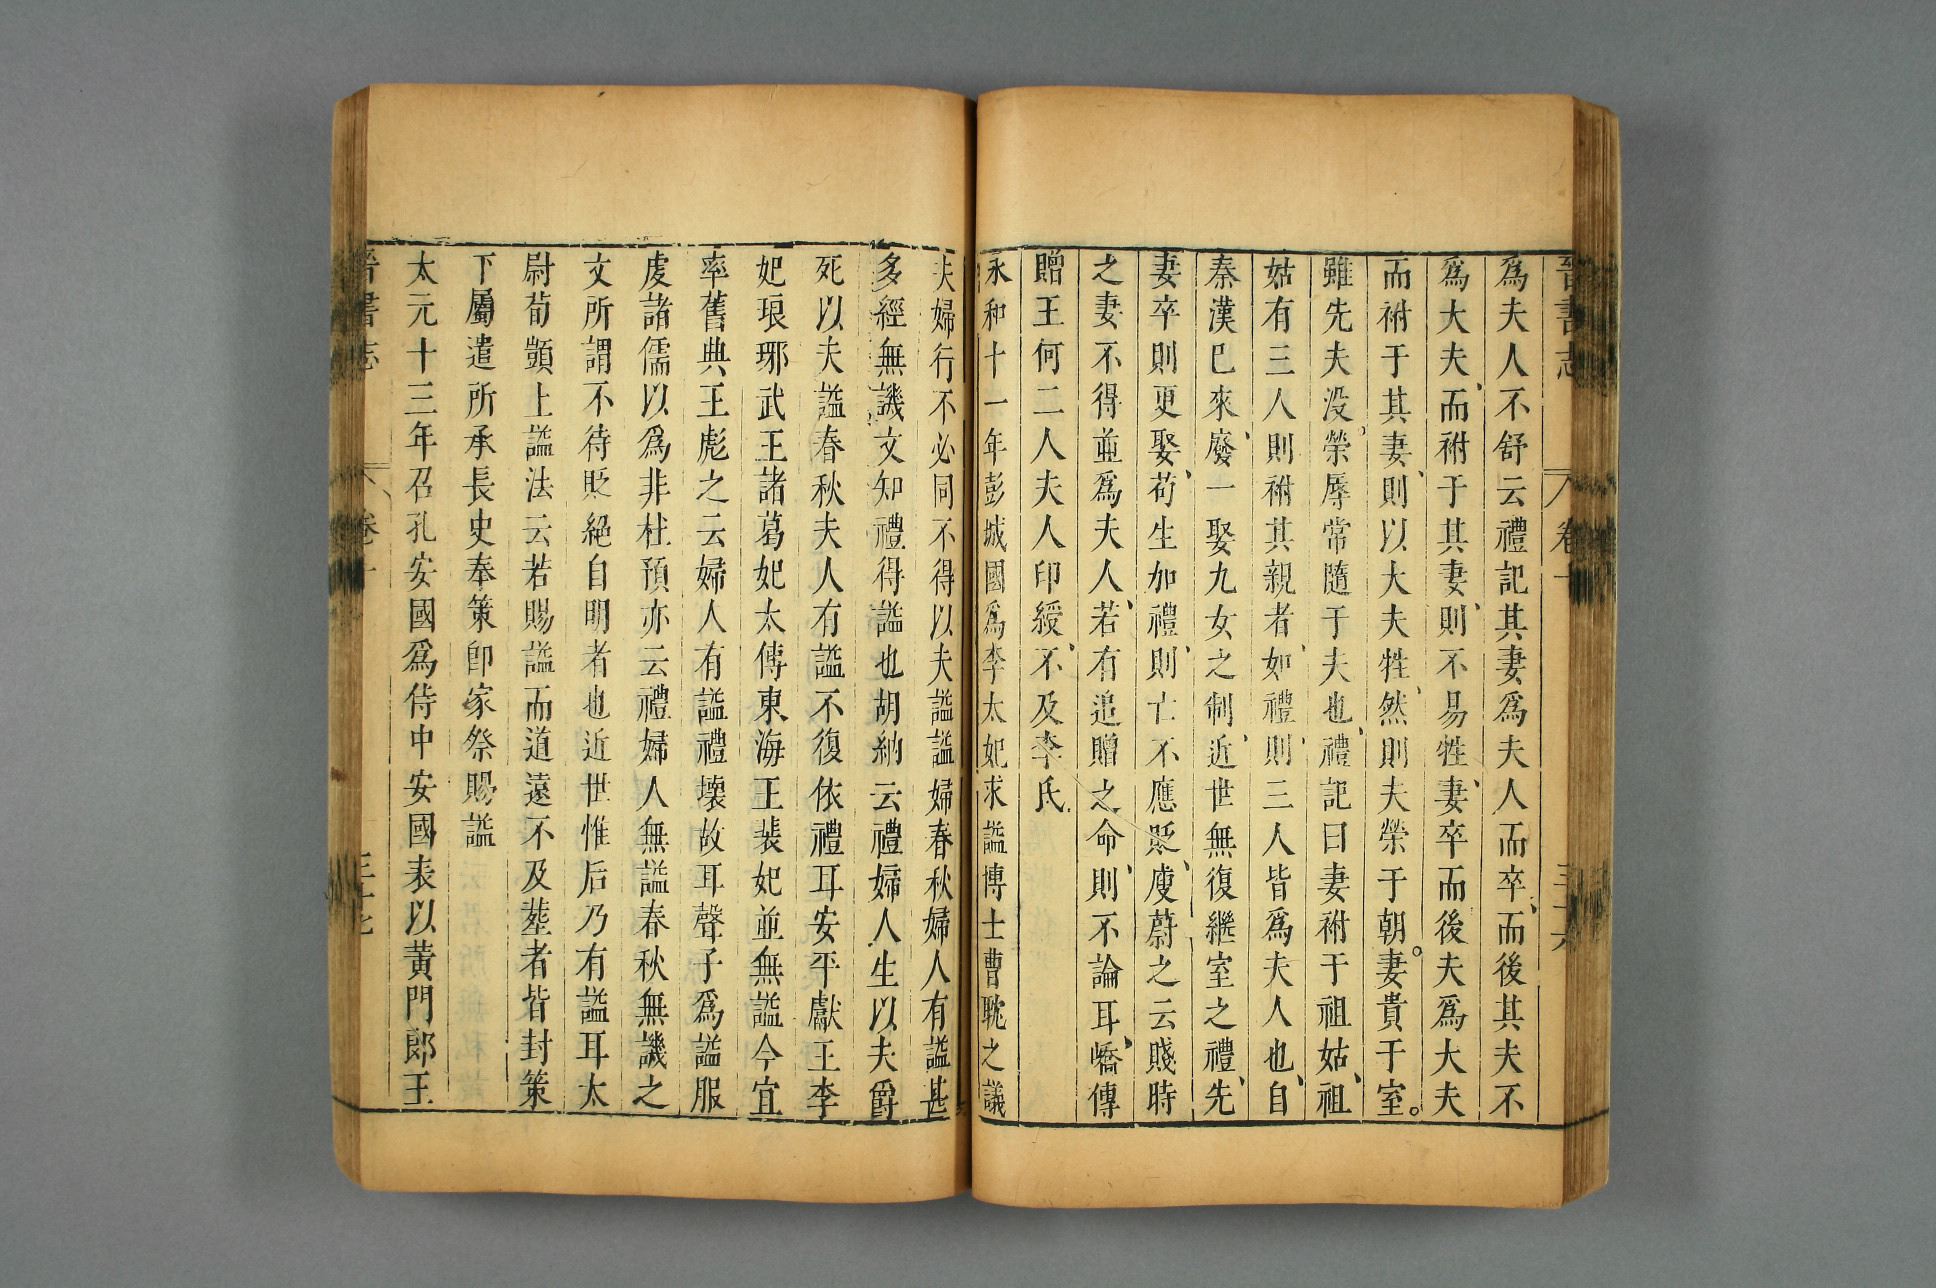 晉書志 卷十 三十六
爲夫人不舒云禮記其妻爲夫人而卒、而後其夫不
爲大夫、而祔于其妻、則不易牲、妻卒而後夫爲大夫
而祔于其妻、則以大夫牲、然則夫榮于朝。妻貴于室。
雖先夫没。榮辱常隨于夫也、禮記曰妻祔于祖姑、祖
姑有三人則祔其親者、如禮、則三人皆爲夫人也、自
秦漢巳來、廢一娶九女之制、近世無復繼室之禮、先
妻卒則更娶、苟生加禮、則亡不應貶、庾蔚之云賤時
之妻不得並爲夫人、若有追贈之命、則不論耳、嶠傳
贈王何二人夫人印綬、不及李氏
永和十一年彭城國爲李太妃求謚博士曹耽之議
夫婦行不必同不得以夫謚謚婦春秋婦人有謚甚
多經無譏文知禮得謚也胡納云禮婦人生以夫爵
死以夫謚春秋夫人有謚不復依禮耳安平獻王李
妃琅琊武王諸葛妃太傅東海王裴妃並無謚今宜
率舊典王彪之云婦人有謚禮壞故耳聲子爲謚服
虔諸儒以爲非杜預亦云禮婦人無謚春秋無譏之
文所謂不待貶絕自明者也近世惟后乃有謚耳太
尉荀顗上謚法云若賜謚而道遠不及葬者皆封策
下屬遣所承長史奉策卽家祭賜謚
太元十三年召孔安國爲侍中安國表以黃門郎王
晉書志 卷十 三十七